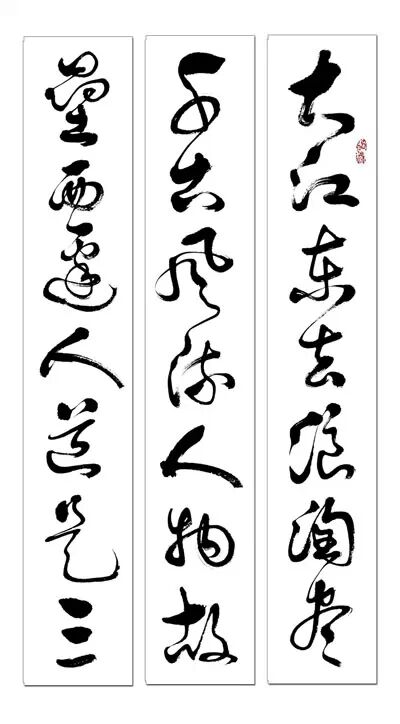 大江东去浪淘尽
千古风流人物故
壘西邊人道是三